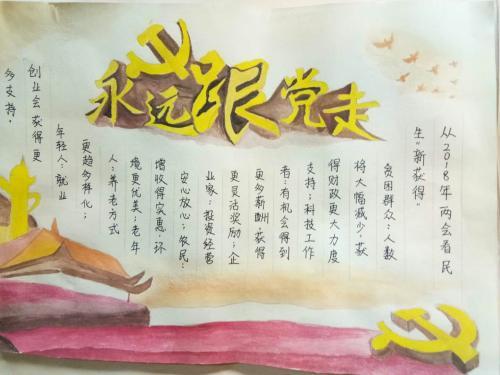 永远跟党走
从2018年两会看民
生“新获得”
贫困群众：人数
将大幅减少，获
得财政更大力度
支持；科技工作
者：有机会得到
更多薪酬，获得
更灵活奖励；企
业家：投资经营
安心放心；农民：
增收得实惠，环
境更优美；老年
人：养老方式
更趋多样化；
年轻人：就业
创业会获得更
多支持，